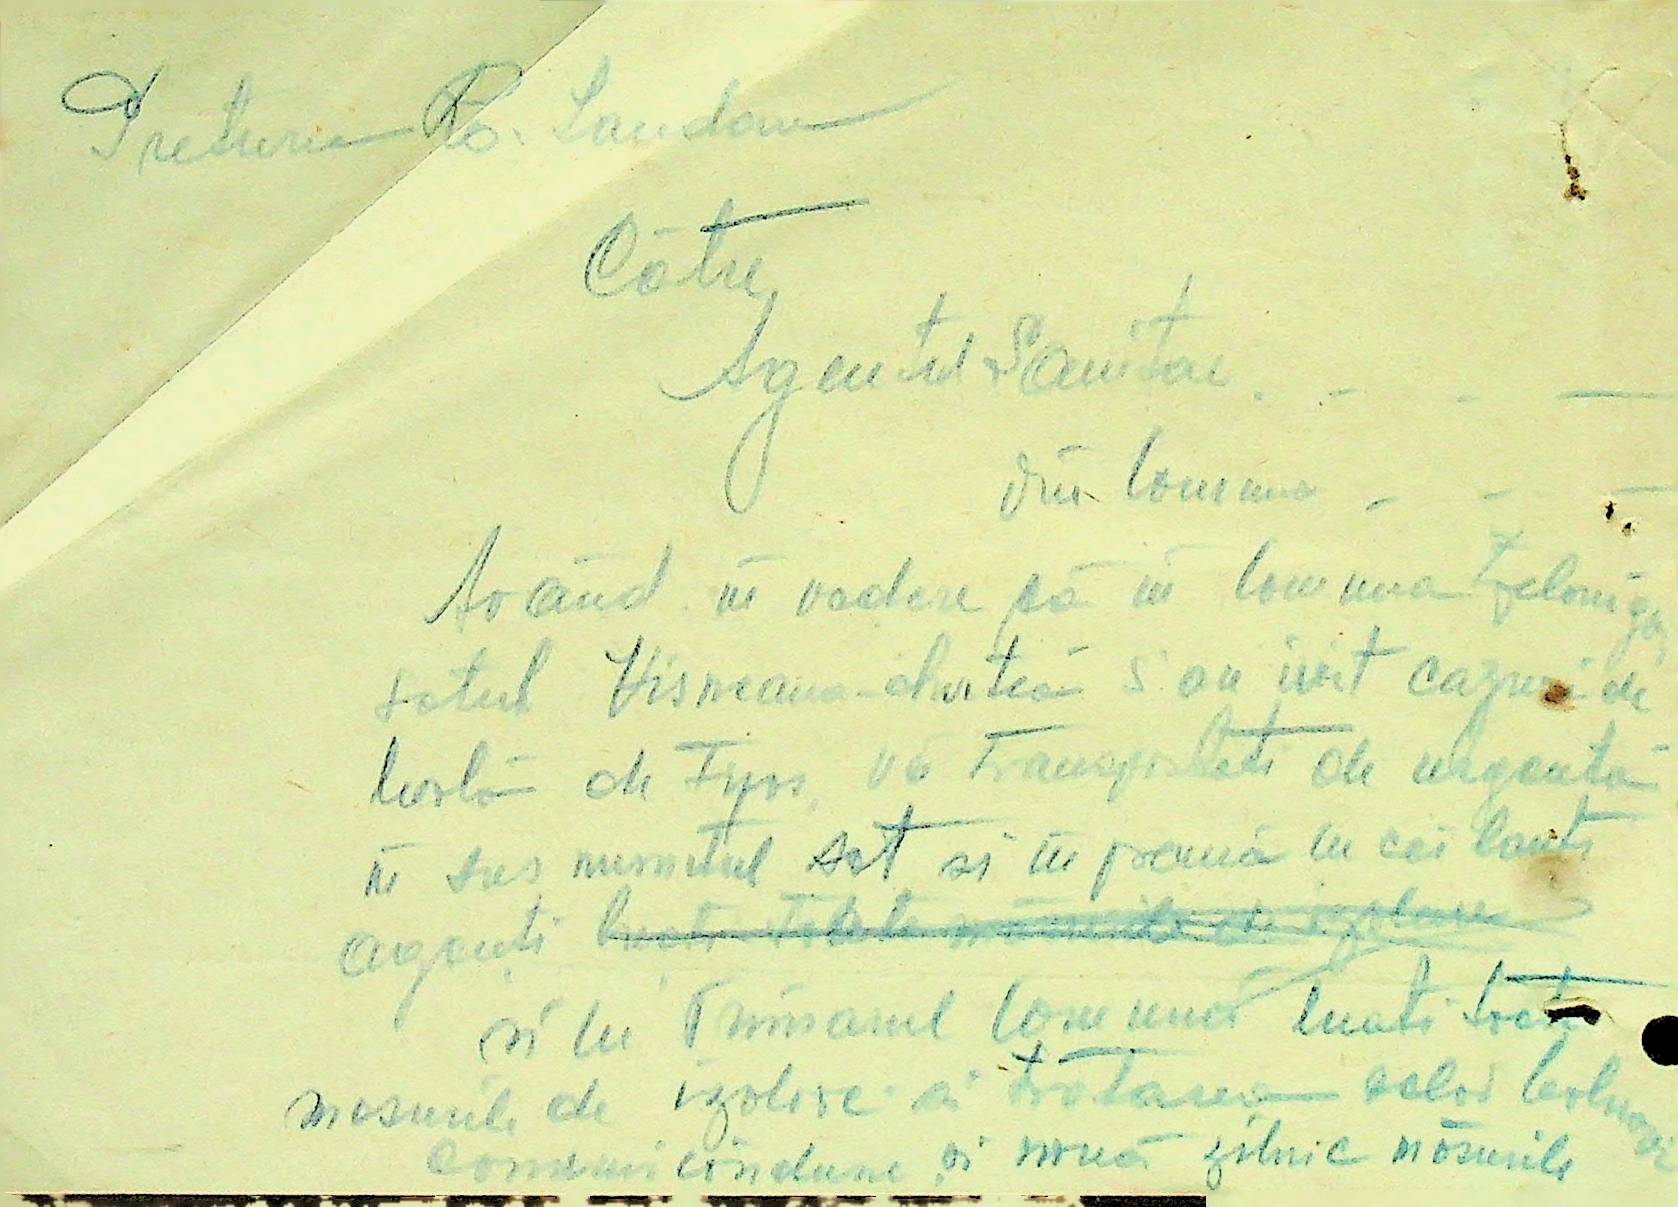 Pretura B. Landau
Către
Agentul Sanitar . - - —
din Comuna - - —
Având în vedere că în Comuna Zeloniga,
satul Visneana s'au ivit cazuri de
boală de Tyfos, vă transportați de urgență
în sus numitul sat și în preună cu cei lanți
agenți luați toate măsurile de izolare
și cu Primarul Comunei luați toate
masurile de izolare și tratarea celor bolnavi
comunicându-ne și nouă zilnic măsurile